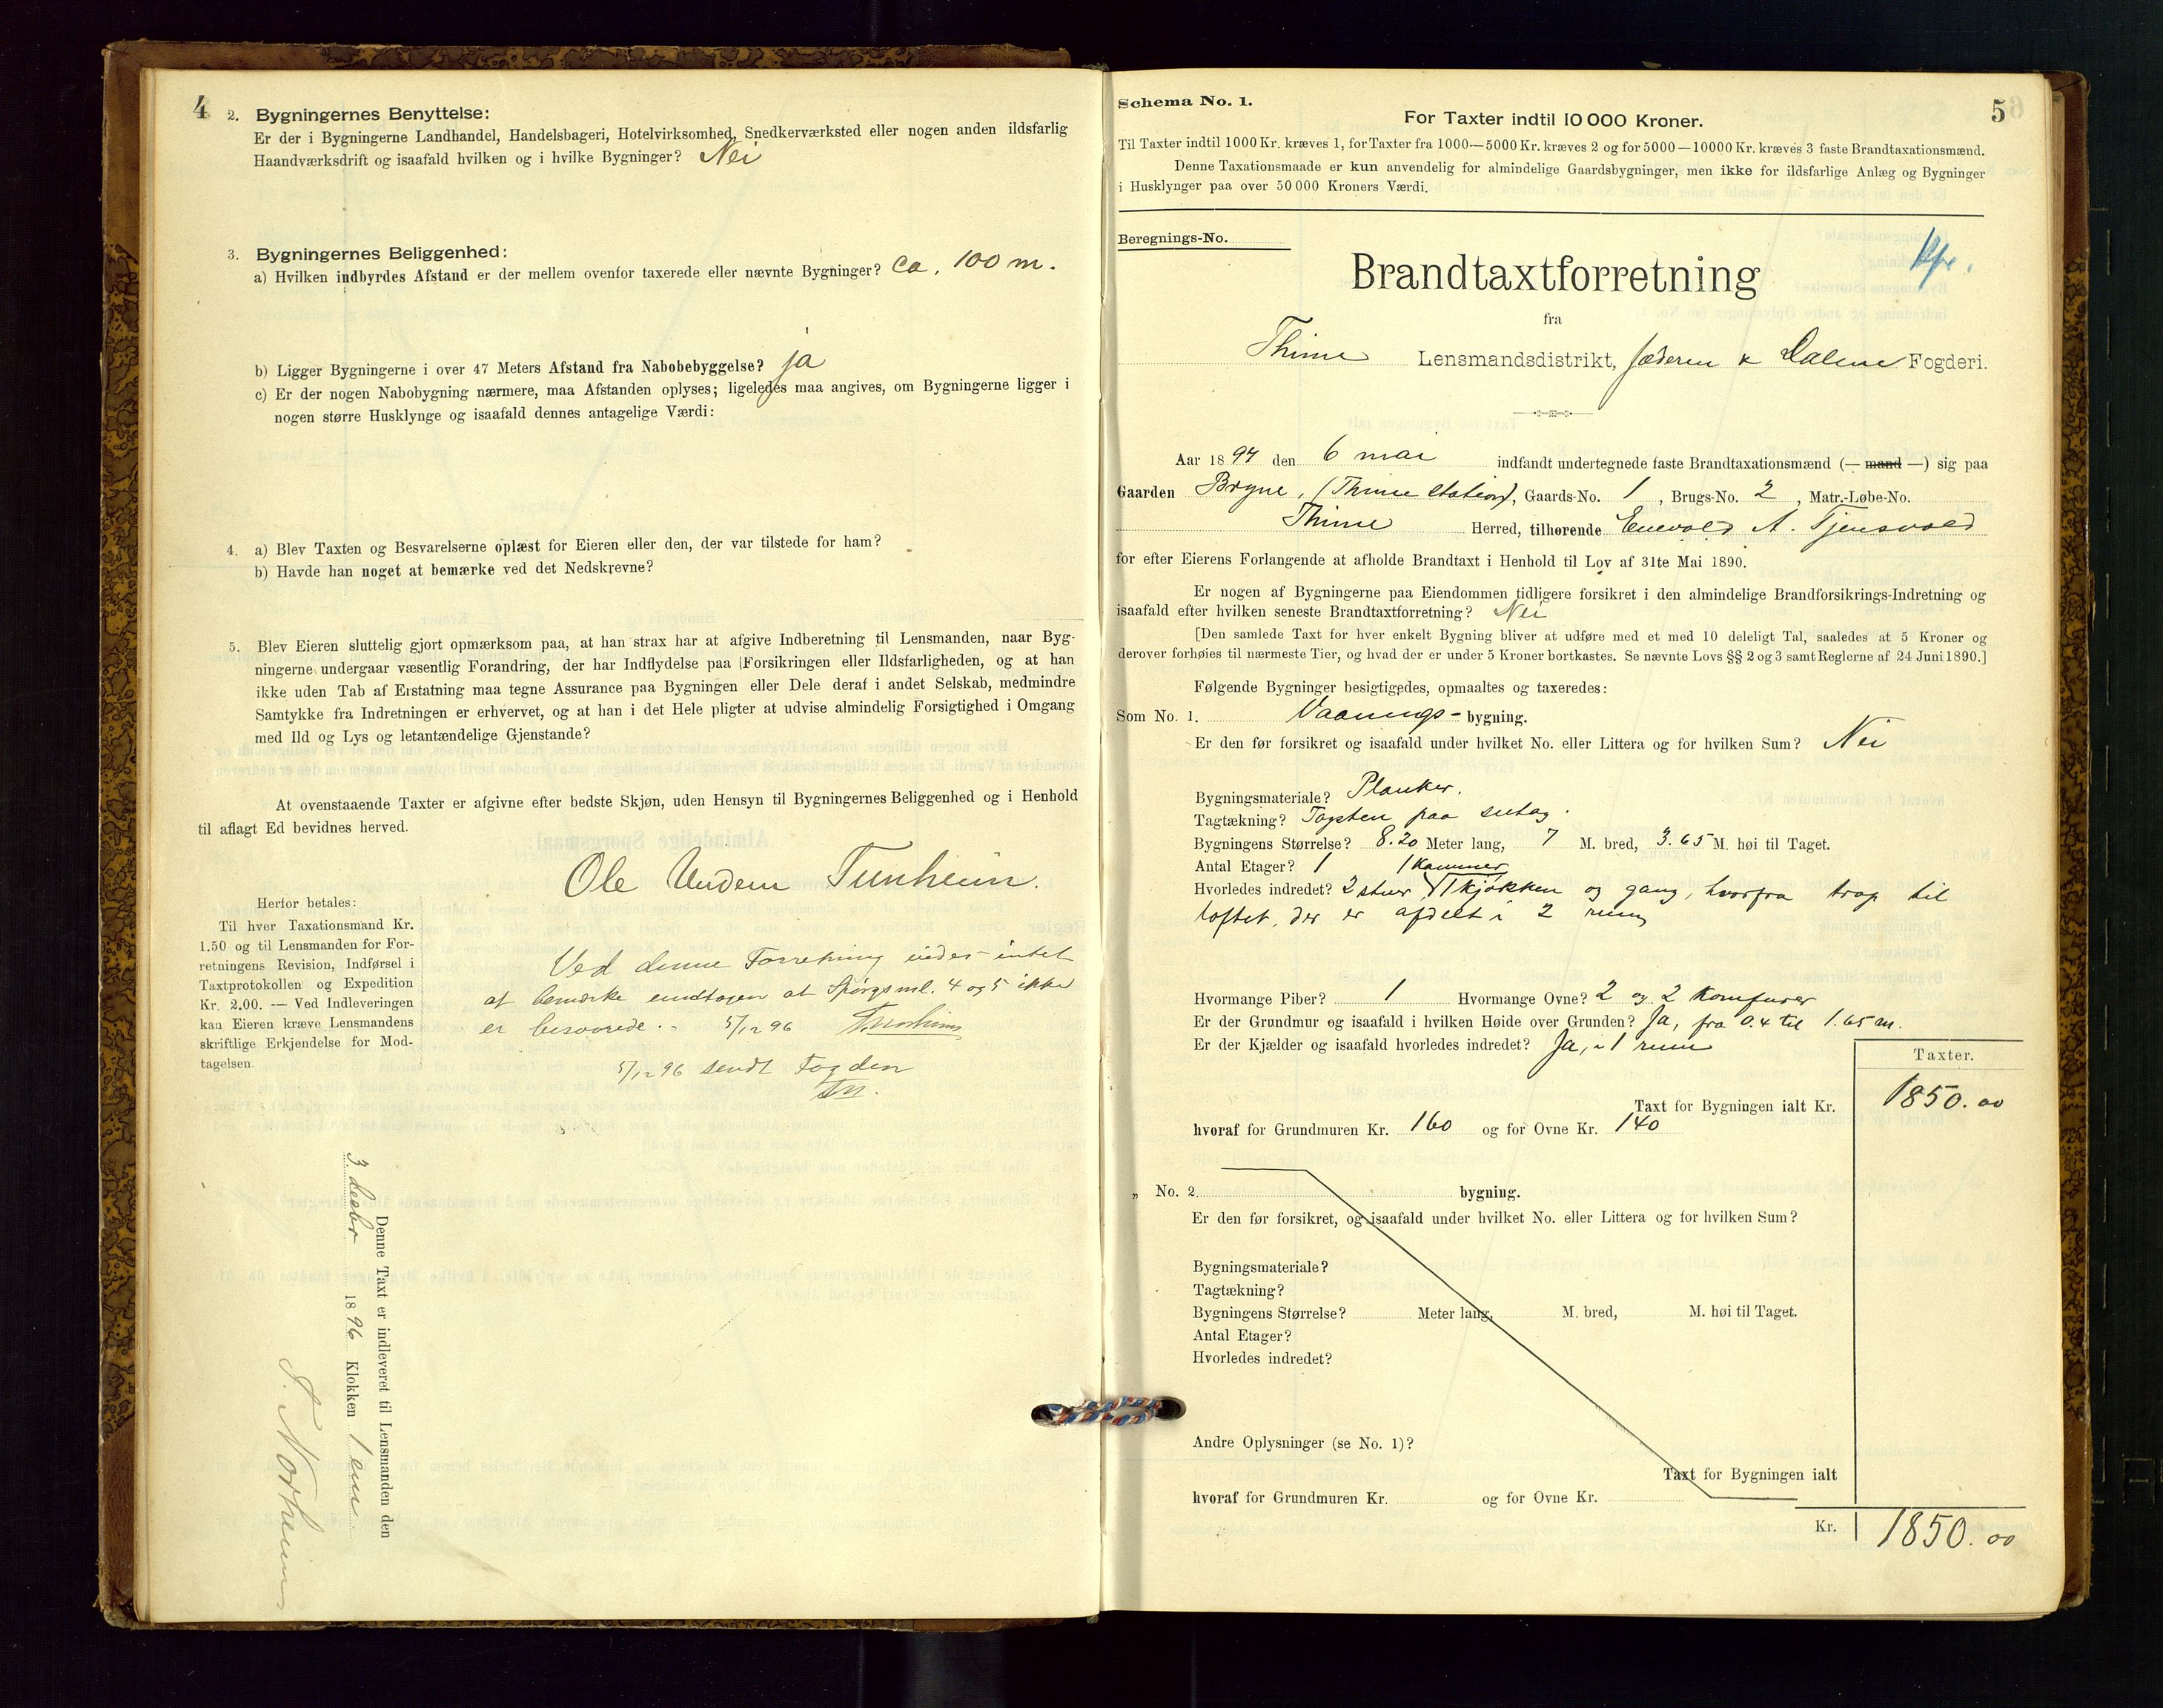 4
2. Bygningernes Benyttelse:
Er der i Bygningerne Landhandel, Handelsbageri, Hotelvirksomhed, Snedkerværksted eller nogen anden ildsfarlig
Haandværksdrift og isaafald hvilken og i hvilke Bygninger? Nei
3. Bygningernes Beliggenhed:
a) Hvilken indbyrdes Afstand er der mellem ovenfor taxerede eller nævnte Bygninger? ca. 100 m.
b) Ligger Bygningerne i over 47 Meters Afstand fra Nabobebyggelse? ja
c) Er der nogen Nabobygning nærmere, maa Afstanden oplyses; ligeledes maa angives, om Bygningerne ligger i
nogen større Husklynge og isaafald dennes antagelige Værdi:
4. a) Blev Taxten og Besvarelserne oplæst for Eieren eller den, der var tilstede for ham?
b) Havde han noget at bemærke ved det Nedskrevne?
5. Blev Eieren sluttelig gjort opmærksom paa, at han strax har at afgive Indberetning til Lensmanden, naar Byg-
ningerne undergaar væsentlig Forandring, der har Indflydelse paa Forsikringen eller Ildsfarligheden, og at han
ikke uden Tab af Erstatning maa tegne Assurance paa Bygningen eller Dele deraf i andet Selskab, medmindre
Samtykke fra Indretningen er erhvervet, og at han i det Hele pligter at udvise almindelig Forsigtighed i Omgang
med Ild og Lys og letantændelige Gjenstande?
At ovenstaaende Taxter er afgivne efter bedste Skjøn, uden Hensyn til Bygningernes Beliggenhed og i Henhold
til aflagt Ed bevidnes herved.
Ole Undem Tunheim.
Herfor betales:
Til hver Taxationsmand Kr.
1.50 og til Lensmanden for For-
retningens Revision, Indførsel i
Taxtprotokollen og Expedition
Kr. 2.00. — Ved Indleveringen
kan Eieren kræve Lensmandens
skriftlige Erkjendelse for Mod-
tagelsen.
Ved denne Forretning intet
at bemærke undtagen at Spørgsml. 4 og 5 ikke
er besvarede. 5/12 96
5/12 96 sendt Fogden
Denne Taxt er indleveret til Lensmanden den
3 decbr 1896 Klokken 1 em
Schema No. 1.
5
For Taxter indtil 10 000 Kroner.
Til Taxter indtil 1000 Kr. kræves 1, for Taxter fra 1000—5000 Kr. kræves 2 og for 5000—10000 Kr. kræves 3 faste Brandtaxationsmænd.
Denne Taxationsmaade er kun anvendelig for almindelige Gaardsbygninger, men ikke for ildsfarlige Anlæg og Bygninger
i Husklynger paa over 50 000 Kroners Værdi.
Beregnings-No.
Brandtaxtforretning
fra
Thime Lensmandsdistrikt, Jæderen & Dalene Fogderi.
Aar 1894 den 6 mai indfandt undertegnede faste Brandtaxationsmænd (— mand —) sig paa
Gaarden Bryne, (Thime Station), Gaards-No. 1, Brugs-No. 2, Matr.-Løbe-No.
Thime Herred, tilhørende Enevold A. Tjensvold
for efter Eierens Forlangende at afholde Brandtaxt i Henhold til Lov af 31te Mai 1890.
Er nogen af Bygningerne paa Eiendommen tidligere forsikret i den almindelige Brandforsikrings-Indretning og
isaafald efter hvilken seneste Brandtaxtforretning? Nei
[Den samlede Taxt for hver enkelt Bygning bliver at udføre med et med 10 deleligt Tal, saaledes at 5 Kroner og
derover forhøies til nærmeste Tier, og hvad der er under 5 Kroner bortkastes. Se nævnte Lovs §§ 2 og 3 samt Reglerne af 24 Juni 1890.]
Følgende Bygninger besigtigedes, opmaaltes og taxeredes:
Som No. 1. Vaanings- bygning.
Er den før forsikret og isaafald under hvilket No. eller Littera og for hvilken Sum? Nei
Bygningsmateriale? Planker.
Tagtækning? Tagsten paa sutag.
Bygningens Størrelse? 8.20 Meter lang, 7 M. bred, 3.65 M. høi til Taget.
Antal Etager? 1
1 Kammer
Hvorledes indredet? 2 stuer 1 kjøkken og gang, hvorfra trap til
loftet, der er afdelt i 2 rum
Hvormange Piber? 1 Hvormange Ovne? 2 og 2 Komfurer
Er der Grundmur og isaafald i hvilken Høide over Grunden? Ja, fra 0.4 til 1.65 m.
Er der Kjælder og isaafald hvorledes indredet? Ja, i 1 rum
Taxter.
Taxt for Bygningen ialt Kr. 1850.00
hvoraf for Grundmuren Kr. 160 og for Ovne Kr. 140
„ No. 2 bygning.
Er den før forsikret, og isaafald under hvilket No. eller Littera og for hvilken Sum?
Bygningsmateriale?
Tagtækning?
Bygningens Størrelse? Meter lang, M. bred, M. høi til Taget.
Antal Etager?
Hvorledes indredet?
Andre Oplysninger (se No. 1)?
Taxt for Bygningen ialt
hvoraf for Grundmuren Kr. og for Ovne Kr.
Kr. 1850.00